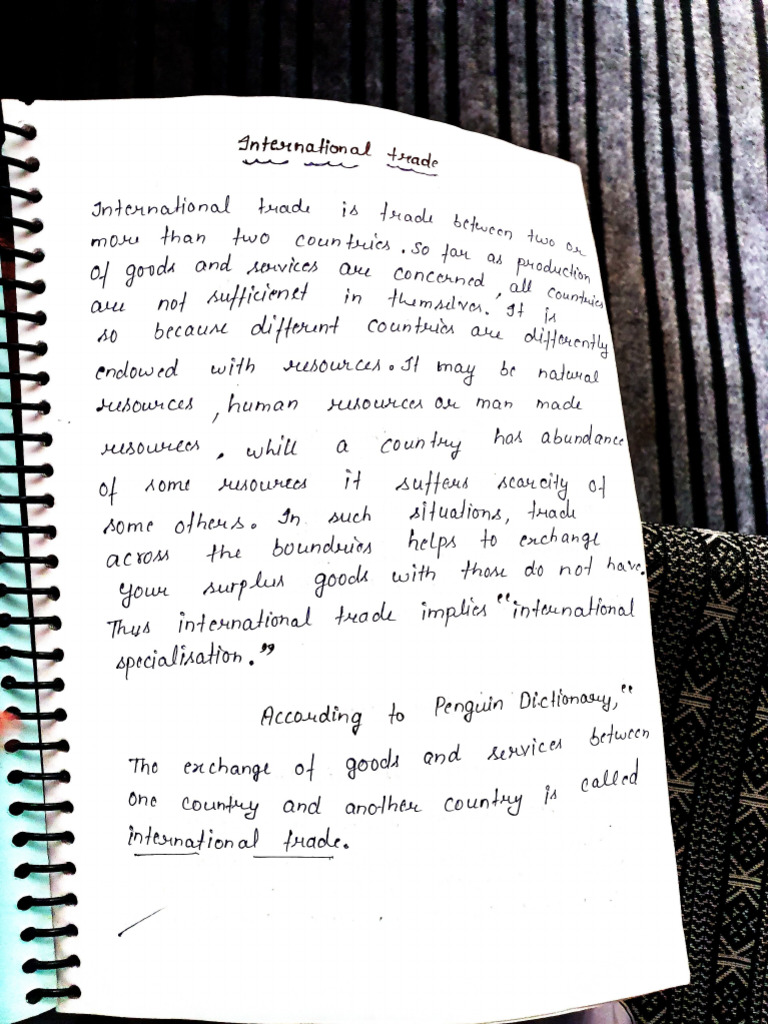 International trade
International trade is trade between two or
more than two countries. So far as production
of goods and services are concerned, all countries
are not sufficienet in themselves. It is
so because different countries are differently
endowed with resources. It may be natural
resources, human resources or man made
resources, while a country has abundance
of some resources it suffers scarcity of
some others. In such situations, trade
across the boundries helps to exchange
your surplus goods with those do not have.
Thus international trade implies "international
specialisation."
According to Penguin Dictionary, "
The exchange of goods and services between
one country and another country is called
international trade.